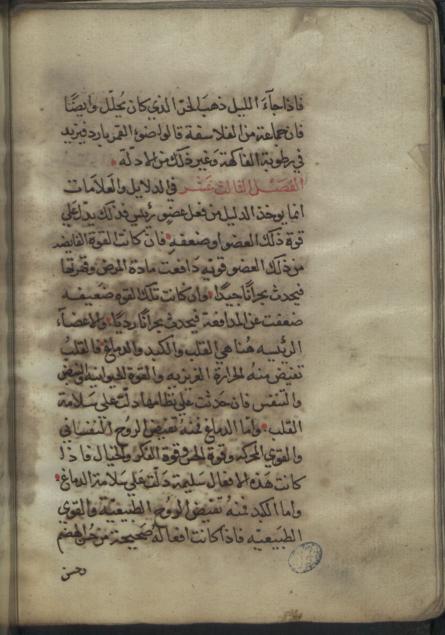 فاذا جآء الليل ذهب الحر الذي كان يحلل وايضًا
فان جماعة من الفلاسفة قالوا ضوء القمر بارد فيزيد
في رطوبة الفاكهة وغير ذلك من الادلة
الفصل الثالث عشر في الدلايل والعلامات
انما يوخذ الدليل من فعل عضو رئيس فذلك يدل علي
قوة ذلك العضو او ضعفه فان كانت القوة الفايضه
من ذلك العضو قويه دافعت مادة المرض وقهرتها
فيحدث بحرانًا جيدًا وان كانت تلك القوه ضعيفه
ضعفت عن المدافعة فيحدث بحرانًا رديًا والاعضآء
الرئيسه هنا هي القلب والكبد والدماغ فالقلب
تفيض منه الحرارة الغريزيه والقوة الحيوانيه والنبض
والتنفس فان حدثت علي نظامها دلت علي سلامة
القلب واما الدماغ فمنه تفيض الروح النفساني
والقوي المحركه وقوة الحس وقوة الفكر والخيال فاذا
كانت هذه الافعال سليمة دلت علي سلامة الدماغ
واما الكبد فمنه تفيض الروح الطبيعية والقوي
الطبيعيه فاذا كانت افعاله صحيحة من حسن الهضم
وحسن